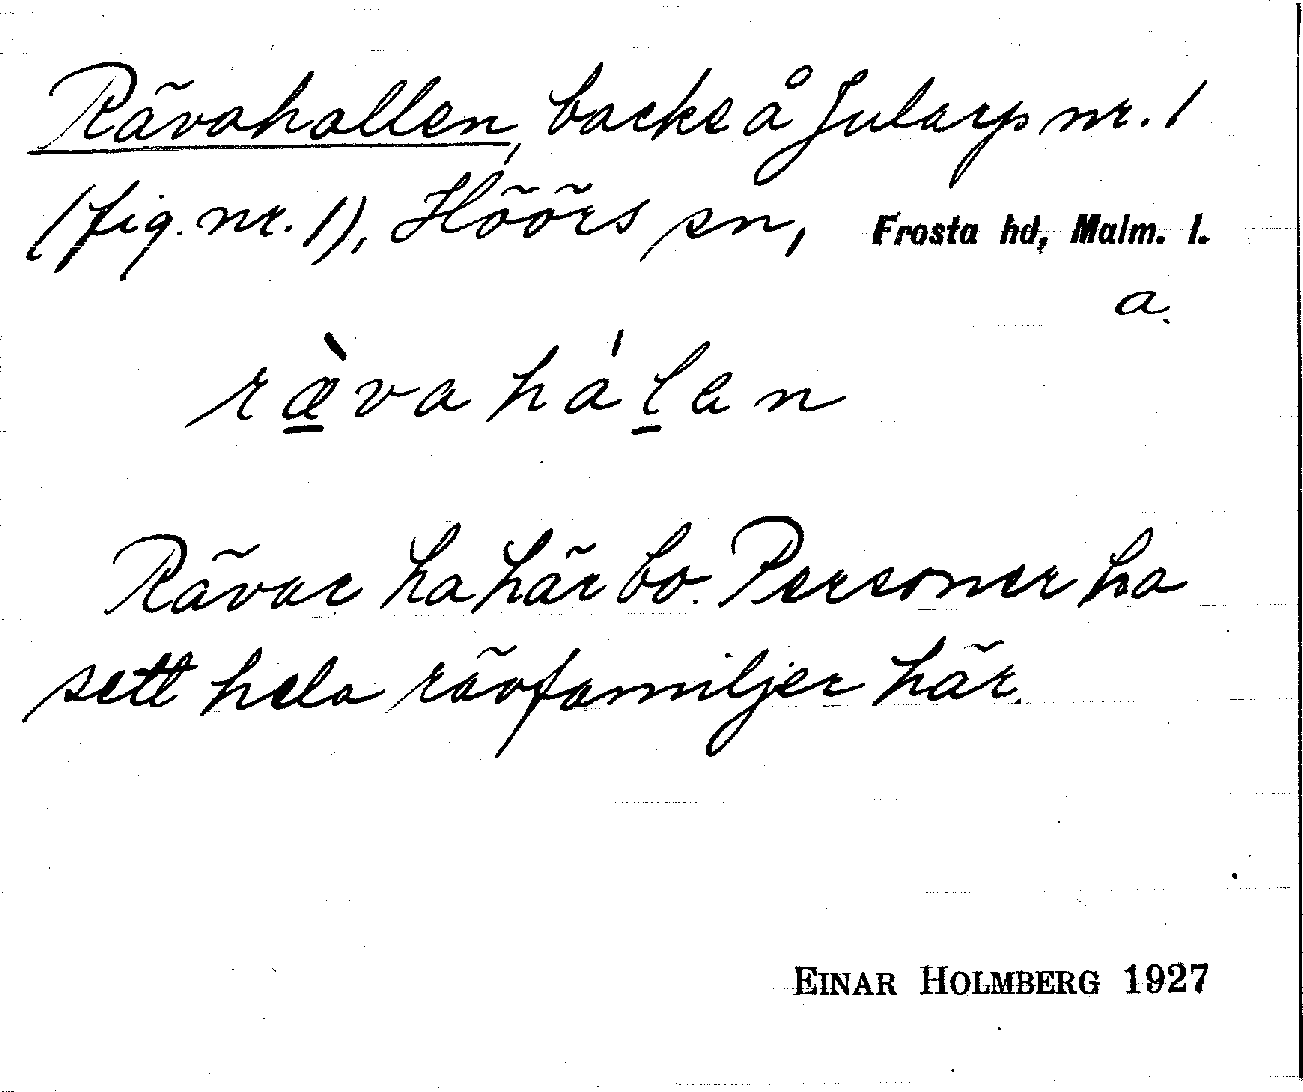 Rävahallen, backe å Jularp nr. 1
(fig. nr. 1), Höörs sn, Frosta hd, Malm. l.
a.
ræ̀va hálen
Rävar ha här bo. Personer ha
sett hela rävfamiljer här.
EINAR HOLMBERG 1927